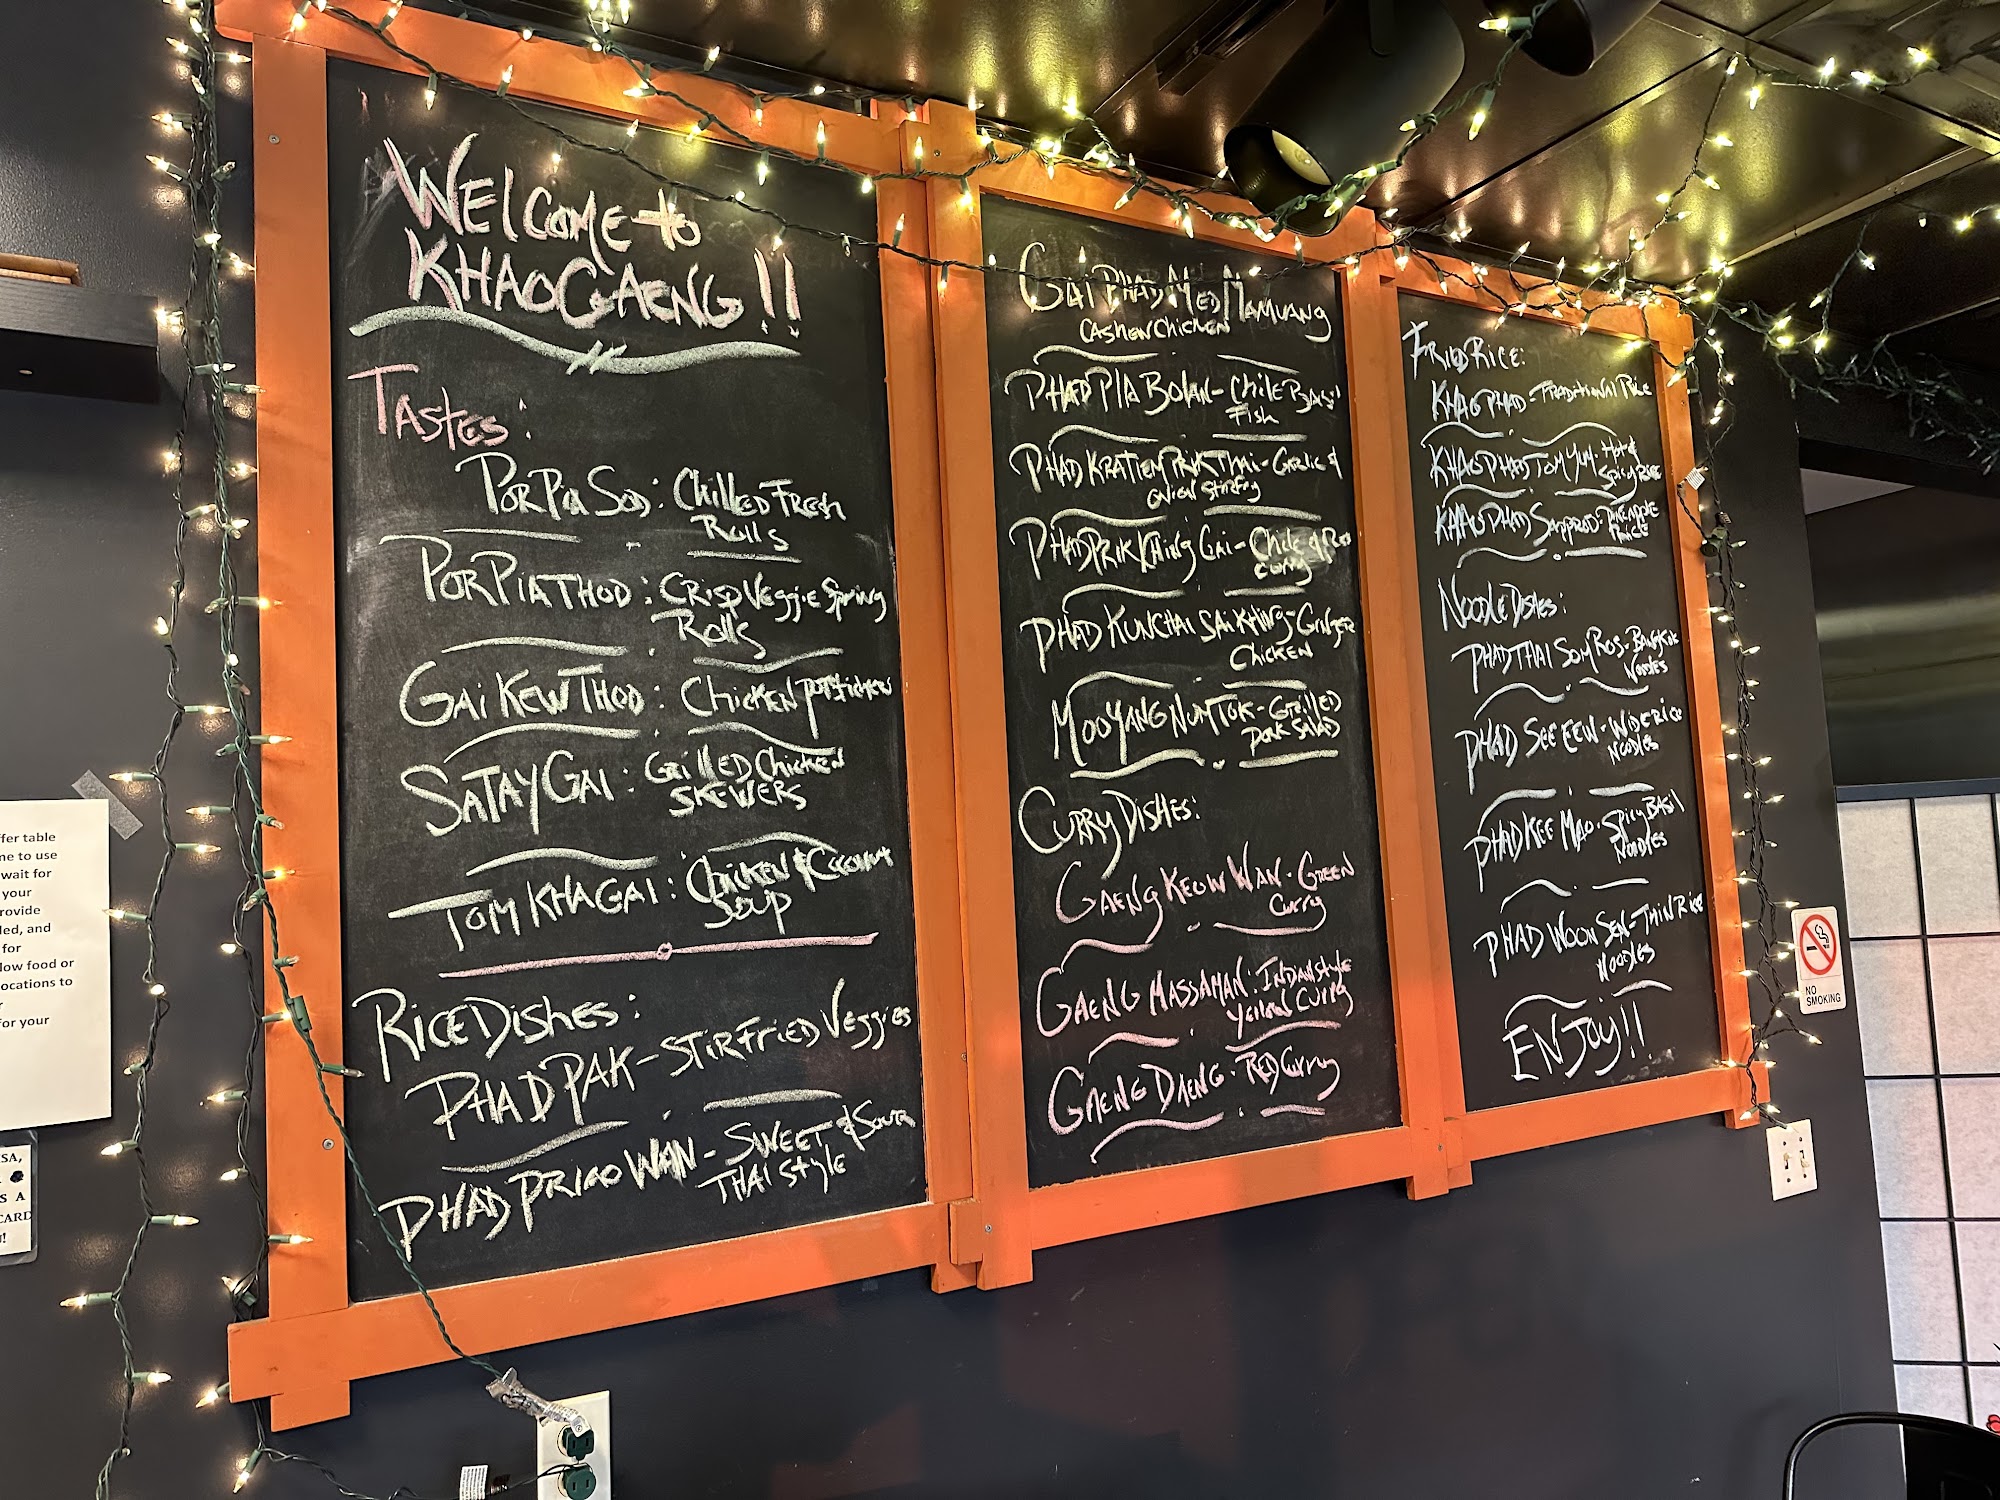 WELCOME to
KHAO GAENG!!
TASTES:
POR PIA SOD: CHILLED FRESH
ROLLS
POR PIA THOD: CRISP VEGGIE SPRING
ROLLS
GAI KEW THOD: CHICKEN POTSTICKERS
SATAY GAI: GRILLED CHICKEN
SKEWERS
TOM KHA GAI: CHICKEN & COCONUT
SOUP
RICE DISHES:
PHAD PAK - STIR FRIED VEGGIES
PHAD PRIAO WAN - SWEET & SOUR
THAI STYLE
GAI PHAD MED MAMUANG
CASHEW CHICKEN
PHAD PLA BOLAN - CHILE BASIL
FISH
PHAD KRATIEM PRIK THAI - GARLIC &
ONION STIRFRY
PHAD PRIK KHING GAI - CHILE & RED
CURRY
PHAD KUNCHAI SAI KHING - GINGER
CHICKEN
MOO YANG NUM TOK - GRILLED
PORK SALAD
CURRY DISHES:
GAENG KEOW WAN - GREEN
CURRY
GAENG MASSAMAN: INDIAN STYLE
YELLOW CURRY
GAENG DAENG - RED CURRY
FRIED RICE:
KHAO PHAD - TRADITIONAL RICE
KHAO PHAD TOM YUM - HOT &
SPICY RICE
KHAO PHAD SAPPROD - PINEAPPLE
RICE
NOODLE DISHES:
PHAD THAI SOM ROS - BANGKOK
NOODLES
PHAD SEE EEW - WIDE RICE
NOODLES
PHAD KEE MAO - SPICY BASIL
NOODLES
PHAD WOON SEN - THIN RICE
NOODLES
ENJOY!!
ffer table
me to use
wait for
your
rovide
led, and
for
low food or
ocations to
r
for your
SA,
S A
CARD
!
NO
SMOKING